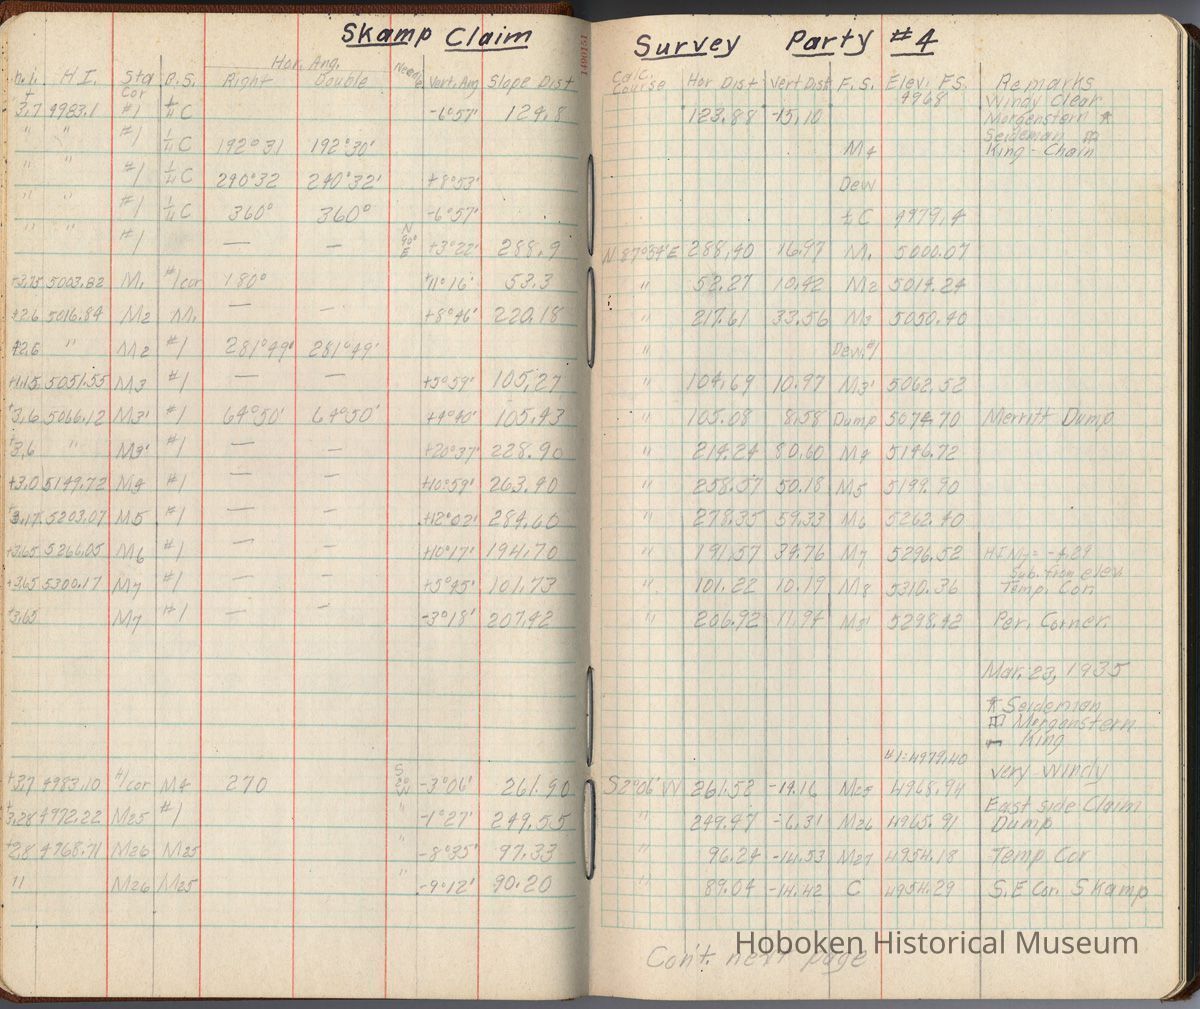 Skamp Claim Survey Party #4
1490151
Hor. Ang. Calc.
H.I. Sta B.S. Right Double Needle Vert. Ang Slope Dist Course Hor Dist Vert Dist F.S. Elev. F.S. Remarks
Cor 4968 Windy Clear
3.7 4983.1 #1 ¼C -6°57' 124.8 123.88 -15.10 Morgenstern
Seideman
" " #1 ¼C 192°31 192°30' M4 King - Chain
" " #1 ¼C 240°32 240°32' +8°53' Dew
" " #1 ¼C 360° 360° -6°57' ¼C 4979.4
" " #1 — — N 90° E +3°22' 288.9 N 87°54'E 288.40 16.97 M1 5000.07
+3.75 5003.82 M1 #1cor 180° +11°16' 53.3 " 52.27 10.42 M2 5014.24
+2.6 5016.84 M2 M1 — — +8°46' 220.18 " 217.61 33.56 M3 5050.40
+2.6 " M2 #1 281°49' 281°49' " Dew.#1
+1.15 5051.55 M3 #1 — — +5°59' 105.27 " 104.69 10.97 M3' 5062.52
+3.6 5066.12 M3' #1 64°50' 64°50' +4°40' 105.43 " 105.08 8.58 Dump 5074.70 Merritt Dump
+3.6 " M3' #1 — — +20°37' 228.90 " 214.24 80.60 M4 5146.72
+3.0 5149.72 M4 #1 — — +10°59' 263.40 " 258.57 50.18 M5 5199.90
3.17 5203.07 M5 #1 — — +12°02' 284.60 " 278.35 59.33 M6 5262.40
+3.65 5266.05 M6 #1 — — +10°17' 194.70 " 191.57 34.76 M7 5296.52 HI M7 = -4.29
Sub. from elev
+3.65 5300.17 M7 #1 — — +5°45' 101.73 " 101.22 10.19 M8 5310.36 Temp. Cor
+3.65 M7 #1 — — -3°18' 207.42 " 206.92 11.94 M8' 5298.42 Per. Corner
Mar. 23, 1935
Seideman
Morganstern
King
#1=4979.40
very windy
+3.7 4983.10 #1cor M4 270 S -3°06' 261.90 S2°06'W 261.52 -14.16 M25 4968.94
East side Claim
+3.28 4972.22 M25 #1 " -1°27' 249.55 " 249.47 -6.31 M26 4965.91 Dump
+2.8 4768.71 M26 M25 " -8°35' 97.33 " 96.24 -14.53 M27 4954.18 Temp Cor
" M26 M25 " -9°12' 90.20 " 89.04 -14.42 C 4954.29 S.E Cor. Skamp
Con't. next page
Hoboken Historical Museum